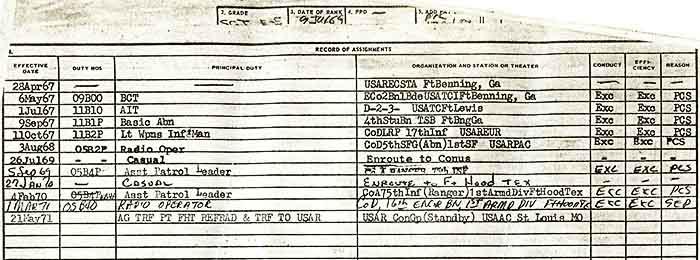 2. GRADE 3. DATE OF RANK 4. PPD
SGT E-5 9Jul69 PCS
1. RECORD OF ASSIGNMENTS
EFFECTIVE DATE DUTY MOS PRINCIPAL DUTY ORGANIZATION AND STATION OR THEATER CONDUCT EFFI- CIENCY REASON
28Apr67 — — USARECSTA FtBenning, Ga — — —
6May67 09B00 BCT ECo2Bn1BdeUSATCIFtBenning, Ga Exc Exc PCS
1Jul67 11B10 AIT D-2-3- USATCFtLewis Exc Exc PCS
9Sep67 11B1P Basic Abn 4thStuBn TSB FtBngGa Exc Exc PCS
11Oct67 11B2P Lt Wpns Inf Man CoDLRP 17thInf USAREUR Exc Exc PCS
3Aug68 05B2P Radio Oper CoD5thSFG(Abn)1stSF USARPAC Exc Exc PCS
26Jul69 — Casual Enroute to Conus — — —
5Sep69 05B4P Asst Patrol Leader EXC EXC PCS
27JAN70 — CASUAL ENROUTE to Ft HOOD TEX — — —
4Feb70 05B4P Asst Patrol Leader CoA75thInf(Ranger)1stArmdDivFtHoodTex EXC EXC PCS
1MAR71 05B40 RADIO OPERATOR CoD, 16th ENGR BN, 1ST ARMD DIV FtHOODTX EXC EXC SEP
21May71 AG TRF PT FHT REFRAD & TRF TO USAR USAR ConGp(Standby) USAAC St Louis MO